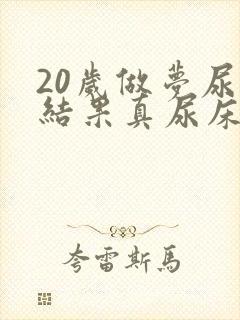 20歲做夢尿
結果真尿床
夸雷斯馬